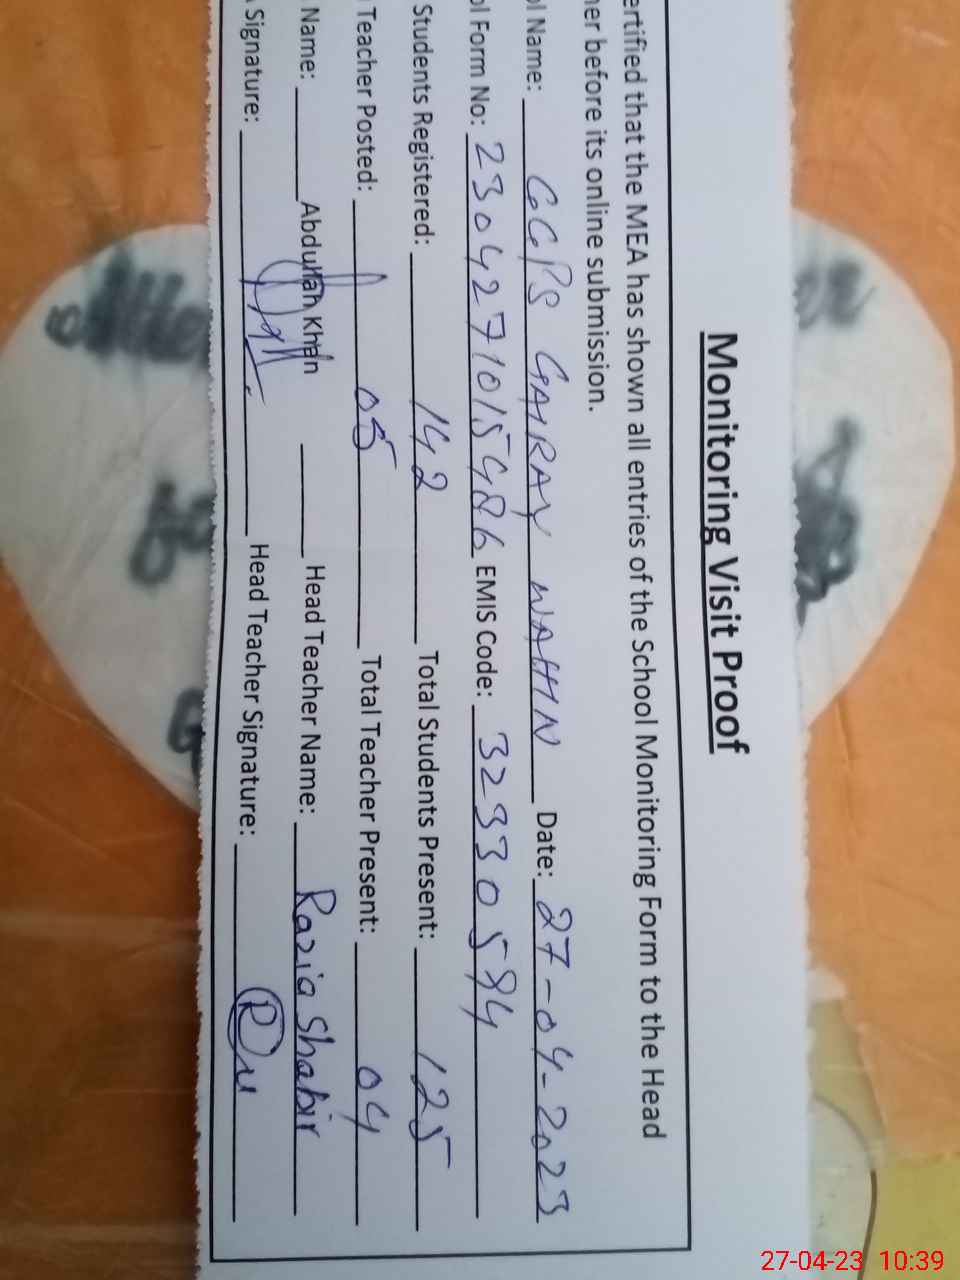 Monitoring Visit Proof
ertified that the MEA has shown all entries of the School Monitoring Form to the Head
her before its online submission.
ol Name: GGPS GAIRAY WAHN Date: 27-04-2023
ol Form No: 2304271015486 EMIS Code: 32330594
Students Registered: 142 Total Students Present: 125
Teacher Posted: 05 Total Teacher Present: 04
Name: Abdullah Khan Head Teacher Name: Razia Shabir
Signature: Head Teacher Signature:
27-04-23 10:39